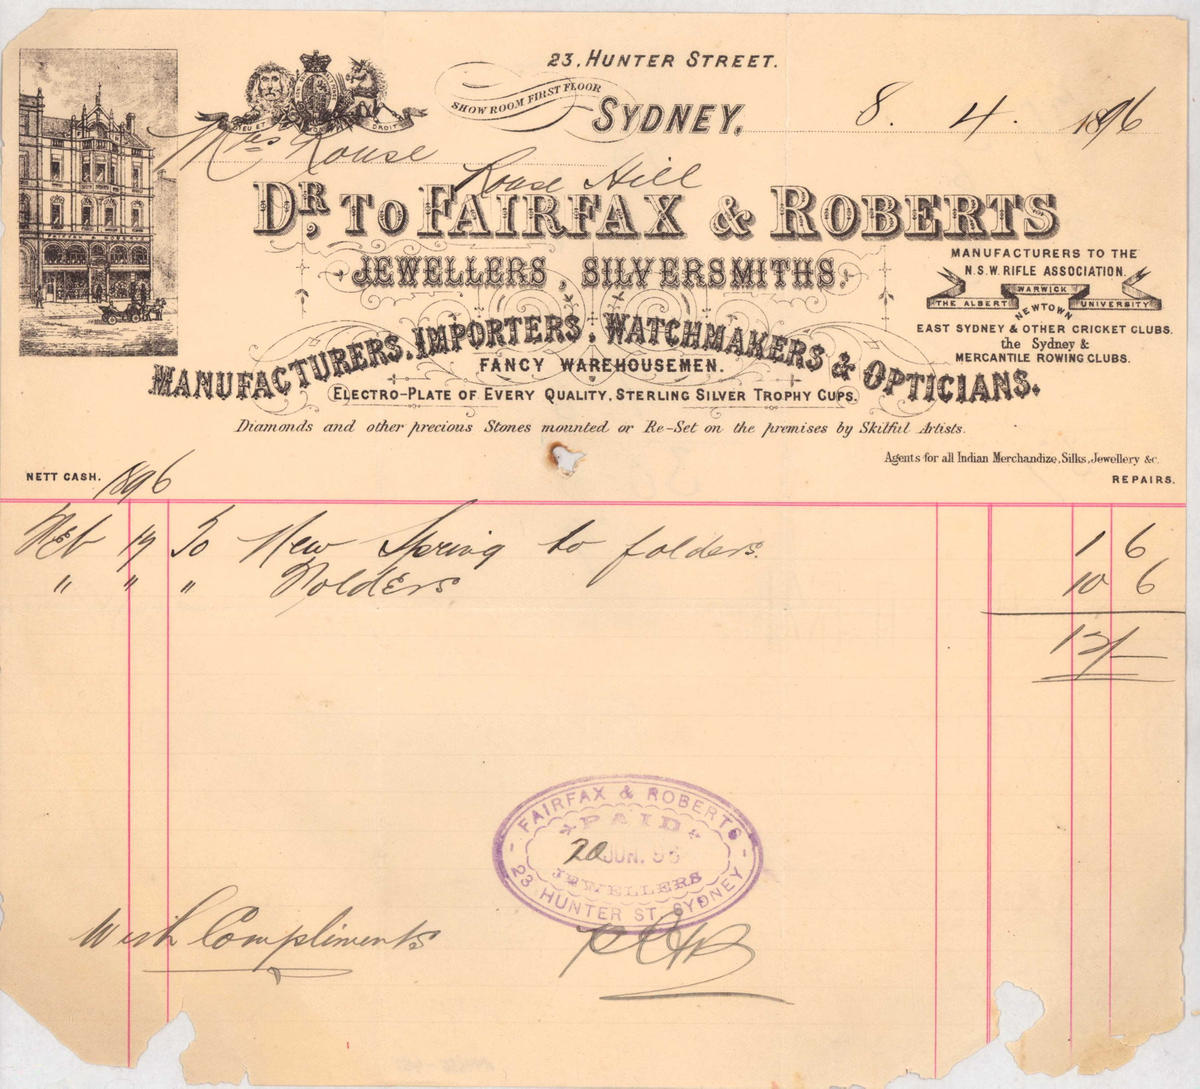 23, HUNTER STREET.
SHOW ROOM FIRST FLOOR
SYDNEY, 8. 4. 1896
DIEU ET MON DROIT
Mrs Rouse
Rouse Hill
DR, TO FAIRFAX & ROBERTS
JEWELLERS, SILVERSMITHS.
MANUFACTURERS, IMPORTERS, WATCHMAKERS & OPTICIANS.
FANCY WAREHOUSEMEN.
ELECTRO-PLATE OF EVERY QUALITY, STERLING SILVER TROPHY CUPS.
Diamonds and other precious Stones mounted or Re-Set on the premises by Skilful Artists.
MANUFACTURERS TO THE
N.S.W. RIFLE ASSOCIATION.
THE ALBERT WARWICK UNIVERSITY
NEWTOWN
EAST SYDNEY & OTHER CRICKET CLUBS.
the Sydney &
MERCANTILE ROWING CLUBS.
Agents for all Indian Merchandize, Silks, Jewellery &c.
NETT CASH. 1896 REPAIRS.
Feb 19 To New Spring to folders. 1 6
" " " Folders 10 6
12/-
FAIRFAX & ROBERTS
PAID
20 JUN. 96
JEWELLERS
23 HUNTER ST. SYDNEY
With Compliments